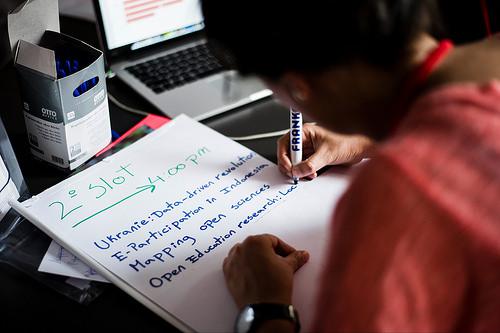 2º Slot
4:00 pm
Ukranie: Data-driven revolution
E-Participation in Indonesia
Mapping open sciences
Open Education research:
FRANK
OTTO